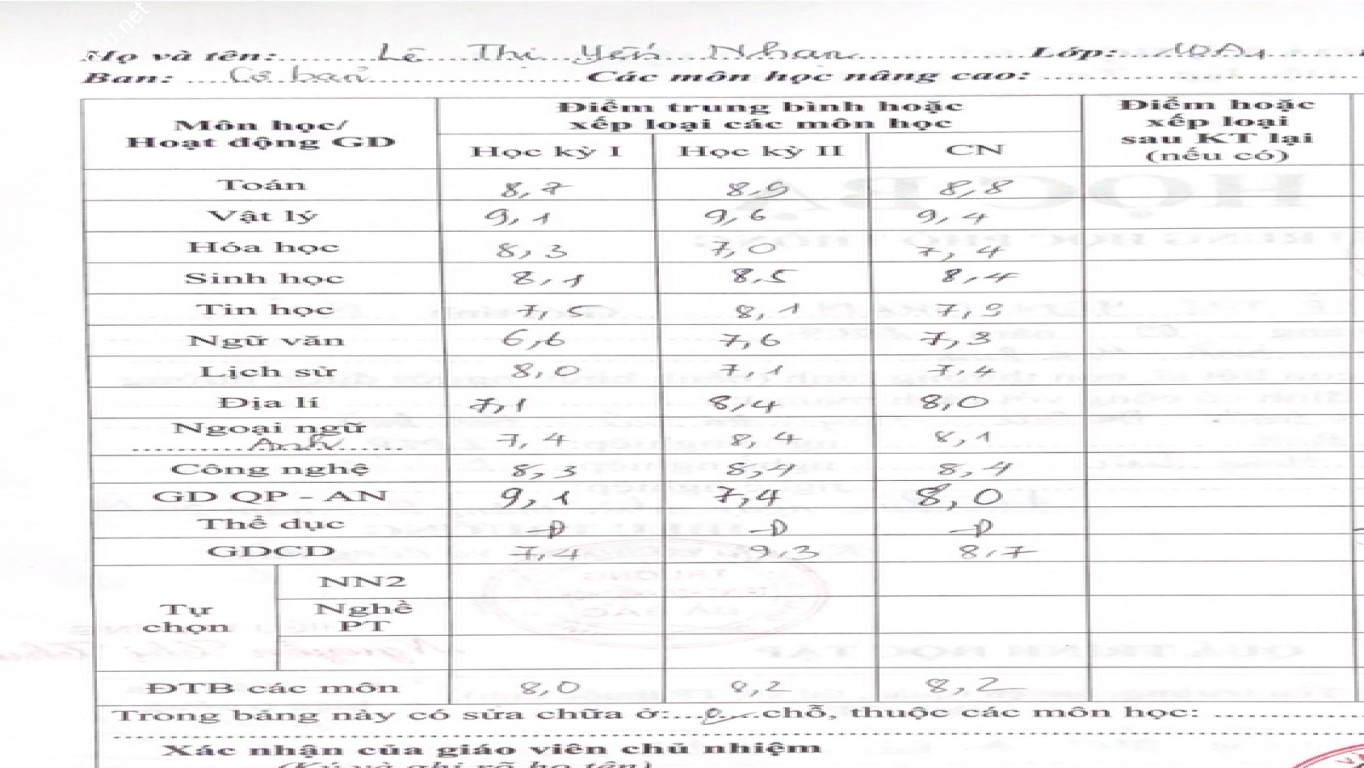 Họ và tên: Lê Thị Yến Nhan Lớp: 10A1
Ban: Cơ bản Các môn học nâng cao:
Môn học/ Hoạt động GD Điểm trung bình hoặc xếp loại các môn học Điểm hoặc xếp loại sau KT lại (nếu có)
Học kỳ I Học kỳ II CN
Toán 8,7 8,9 8,8
Vật lý 9,1 9,6 9,4
Hóa học 8,3 7,0 7,4
Sinh học 8,1 8,5 8,4
Tin học 7,5 8,1 7,9
Ngữ văn 6,6 7,6 7,3
Lịch sử 8,0 7,1 7,4
Địa lí 7,1 8,4 8,0
Ngoại ngữ Anh 7,4 8,4 8,1
Công nghệ 8,3 8,4 8,4
GD QP - AN 9,1 7,4 8,0
Thể dục Đ Đ Đ
GDCD 7,4 9,3 8,7
Tự chọn
NN2
Nghề PT
ĐTB các môn 8,0 8,2 8,2
Trong bảng này có sửa chữa ở: 0 chỗ, thuộc các môn học:
Xác nhận của giáo viên chủ nhiệm
(Ký và ghi rõ họ tên)